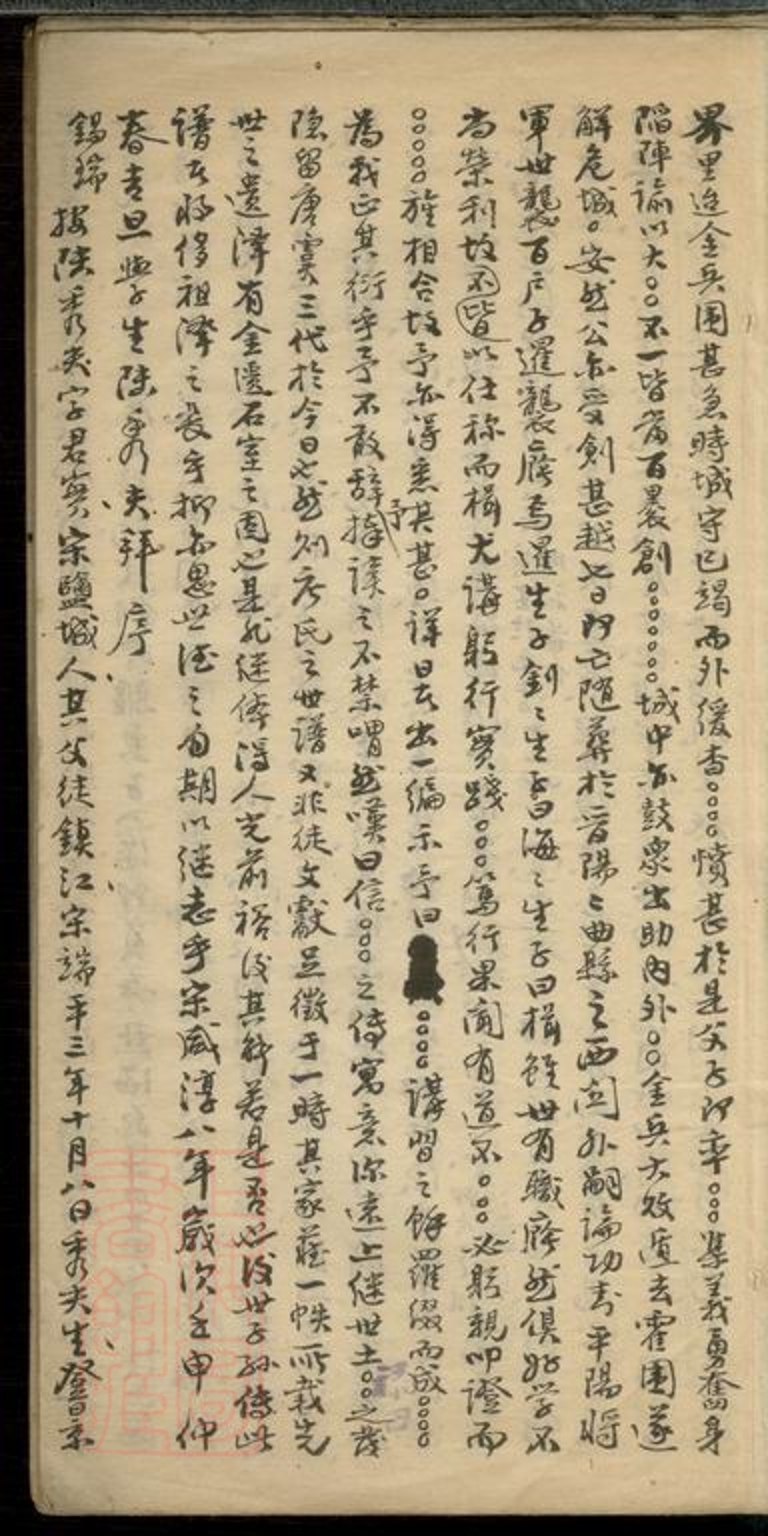 界里迄金兵圍甚急時城守已竭而外緩杳○○○○憤甚於是父子即率○○○集義勇奮身
陷陣諭以大○○不一皆當百累創○○○○○○城中亦鼓衆出助內外○○金兵大敗遁去霍圍遂
解危城○安然公亦受創甚越七日即亡隨葬於晉陽晉曲縣之西關外嗣論功封平陽將
軍世襲百戶子暹襲廕焉暹生子釗釗生子曰海海生子曰楫雖世有職廕然俱好學不
尚榮利故不皆以仕称而楫尤講躬行實踐○○○篤行果聞有道不○○○必躬親叩證而
○○○○○旌相合故予亦得悉其甚○詳日者出一編示予曰○○○○講習之餘羅綴而成○○○○
為我正其衍乎予不敢辭予讀之不禁喟然嘆曰信○○○之傳寓意深遠上继世土○○之茂
隐留唐虞三代於今日也然則彦氏之世譜又非徒文獻足徵于一時其家藏一帙所載先
世之遺澤有金匱石室之固也是於继僖得人光前裕後其斡若是否也後世子孫傳此
譜者將侈祖澤之長乎抑亦思世德之自期以继志乎宋咸淳八年歲次壬申仲
春吉旦與子生陸秀夫拜序
錫瑞按陸秀夫字君實宋鹽城人其父徒鎮江宋端平三年十月八日秀夫生登京